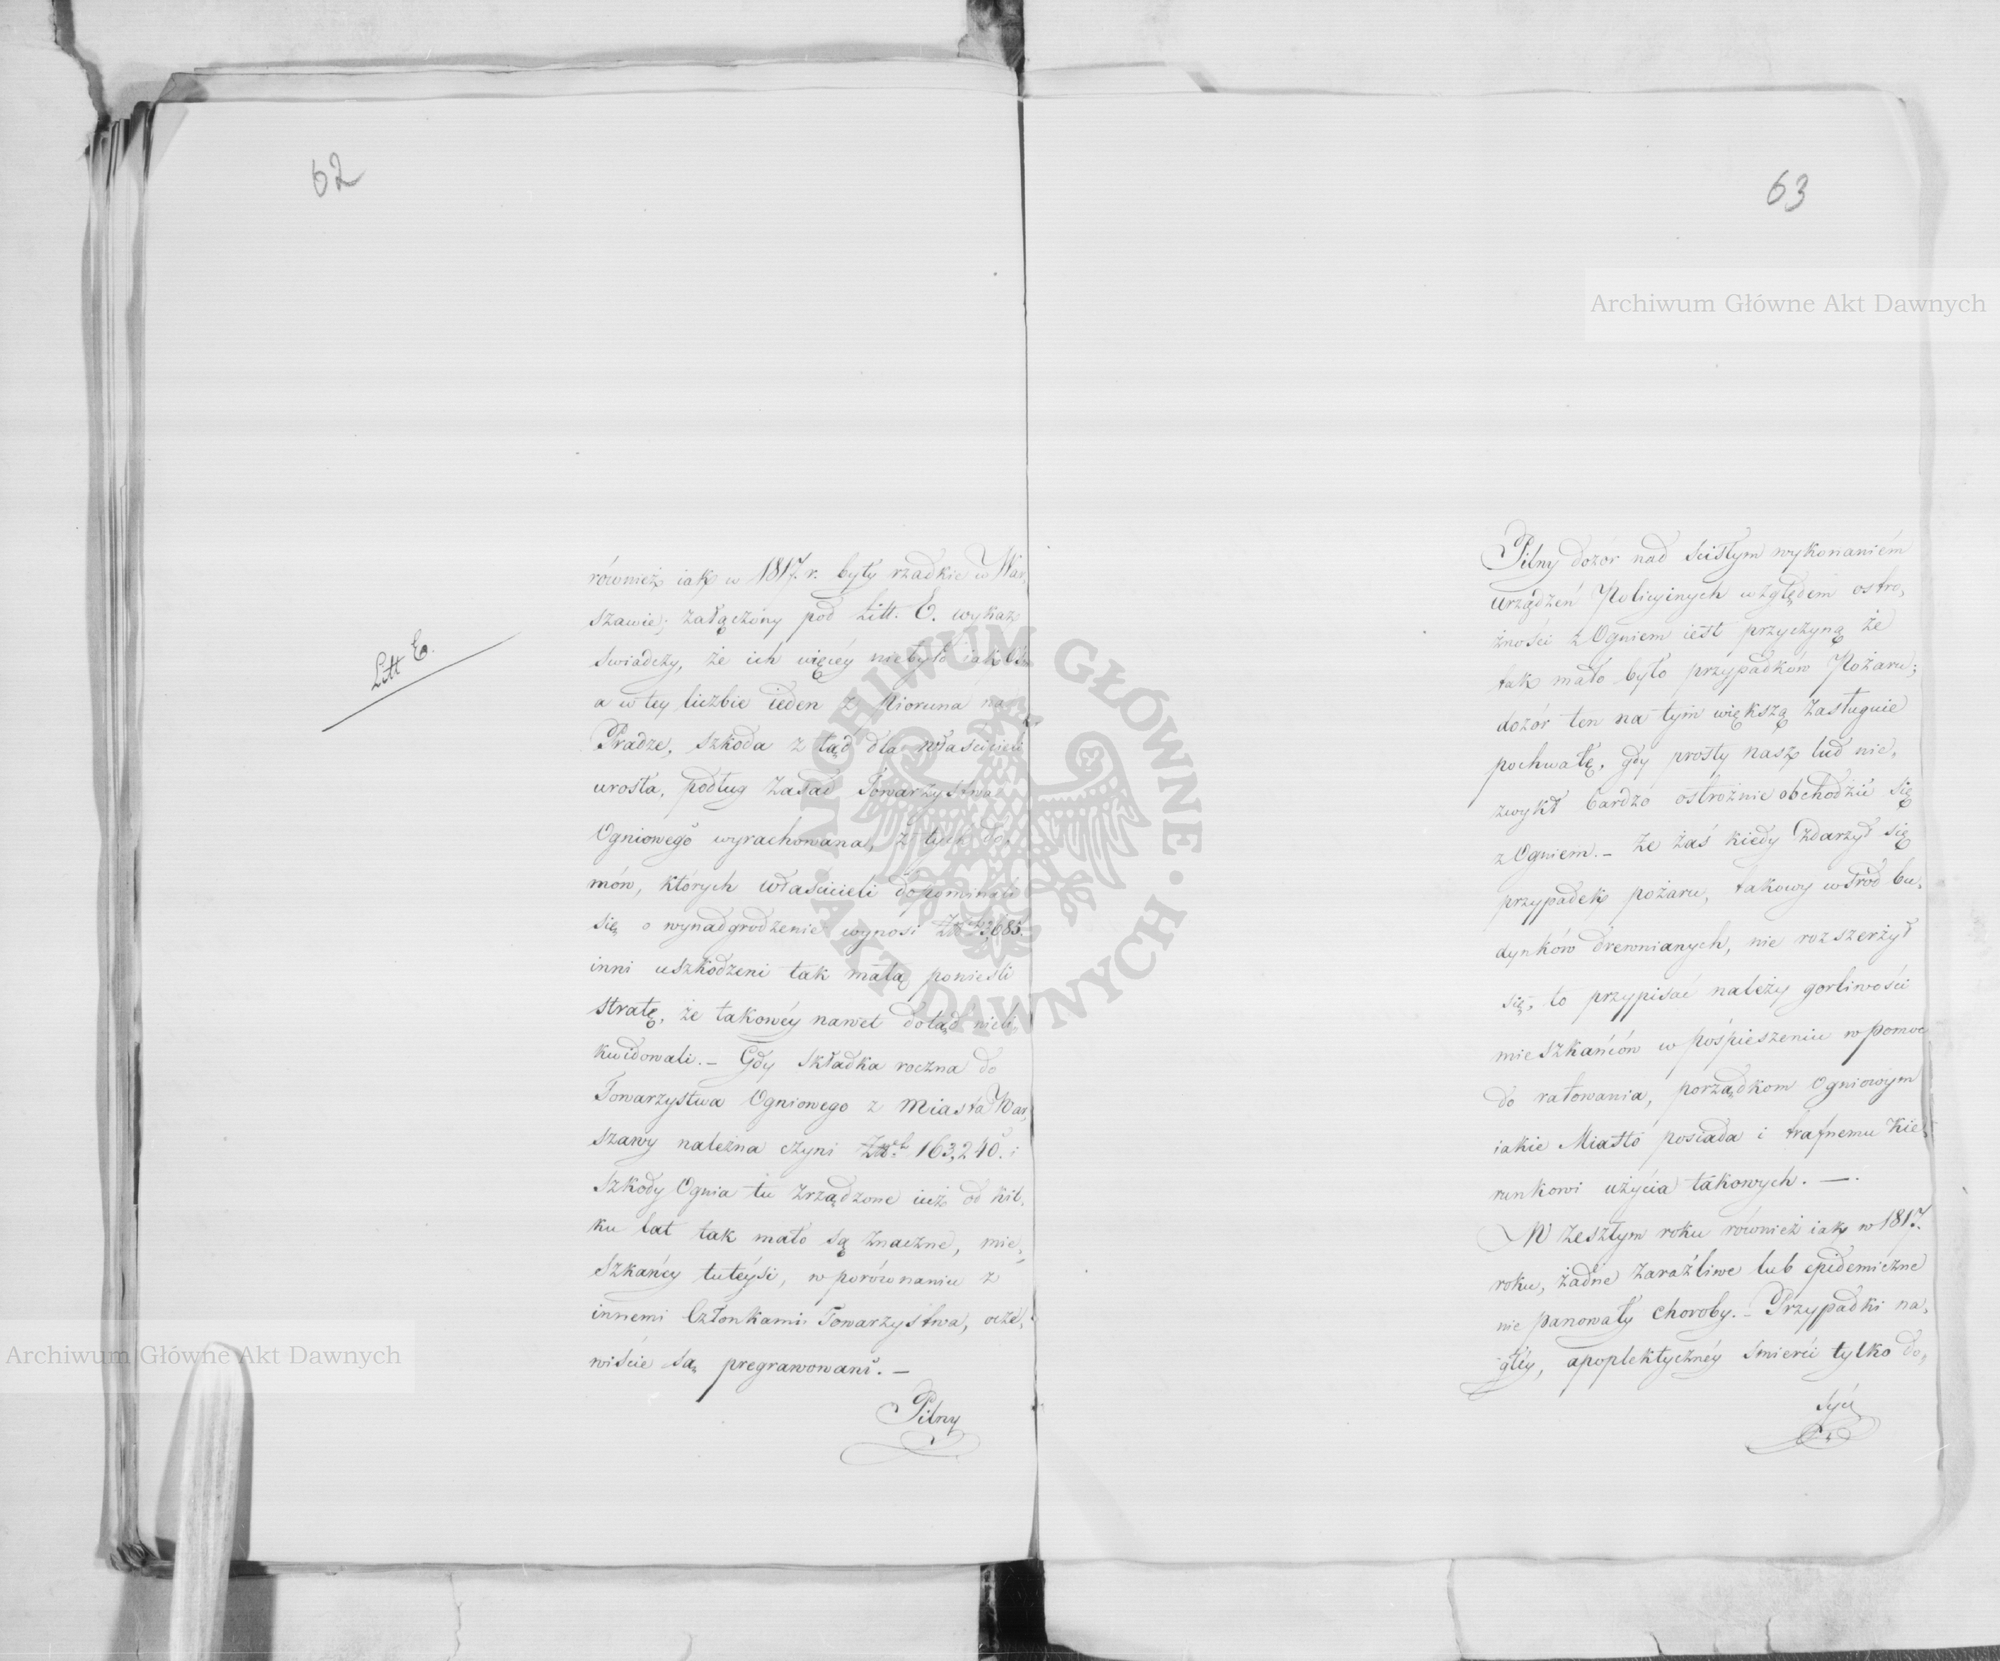 62
Litt E.
również iak w 1817. r. były rzadkie w War,
szawie; załączony pod Litt. E. wykaz
swiadczy, że ich więcéy niebyło iak
a w tey liczbie ieden z Pioruna na
Pradze, szkoda z tąd dla właścicieli
urosła, podług zasad Towarzystwa
Ogniowego wyrachowana, z tych do,
mów, których właściciele dopominali
się o wynadgrodzenie wynosi 3,685.
inni uszkodzeni tak małą ponieśli
stratę, że takowéy nawet dotąd nieli,
kwidowali. – Gdy składka roczna do
Towarzystwa Ogniowego z Miasta War,
szawy należna czyni 163,240. i
szkody Ognia tu zrządzone iuż od kil,
ku lat tak mało są znaczne, mie,
szkańcy tuteysi, w porównaniu z
innemi Członkami Towarzystwa, ocze,
wiście są pregrawowani. –
Pilny
63
Pilny dozór nad scisłym wykonaniém
urządzeń Policyinych względem ostro,
żności z Ogniem iest przyczyną że
tak mało było przypadków Pożaru;
dozór ten na tym większą zasługuie
pochwałę, gdy prosty nasz lud nie,
zwykł bardzo ostrożnie obchodzić się
z Ogniem. – Że zaś kiedy zdarzył się
przypadek pożaru, takowy wśród bu,
dynków drewnianych, nie rozszerzył
się, to przypisać należy gorliwości
mieszkańców w pośpieszeniu w pomoc
do ratowania, porządkom Ogniowym
iakie Miasto posiada i trafnemu kie,
runkowi użycia takowych. —.
W zeszłym roku również iak w 1817.
roku, żadne zaraźliwe lub epidemiczne
nie panowały choroby. – Przypadki na,
głéy, apoplektycznéy śmierci tylko do,
syć
Archiwum Główne Akt Dawnych
Archiwum Główne Akt Dawnych
ARCHIWUM GŁÓWNE · AKT DAWNYCH ·